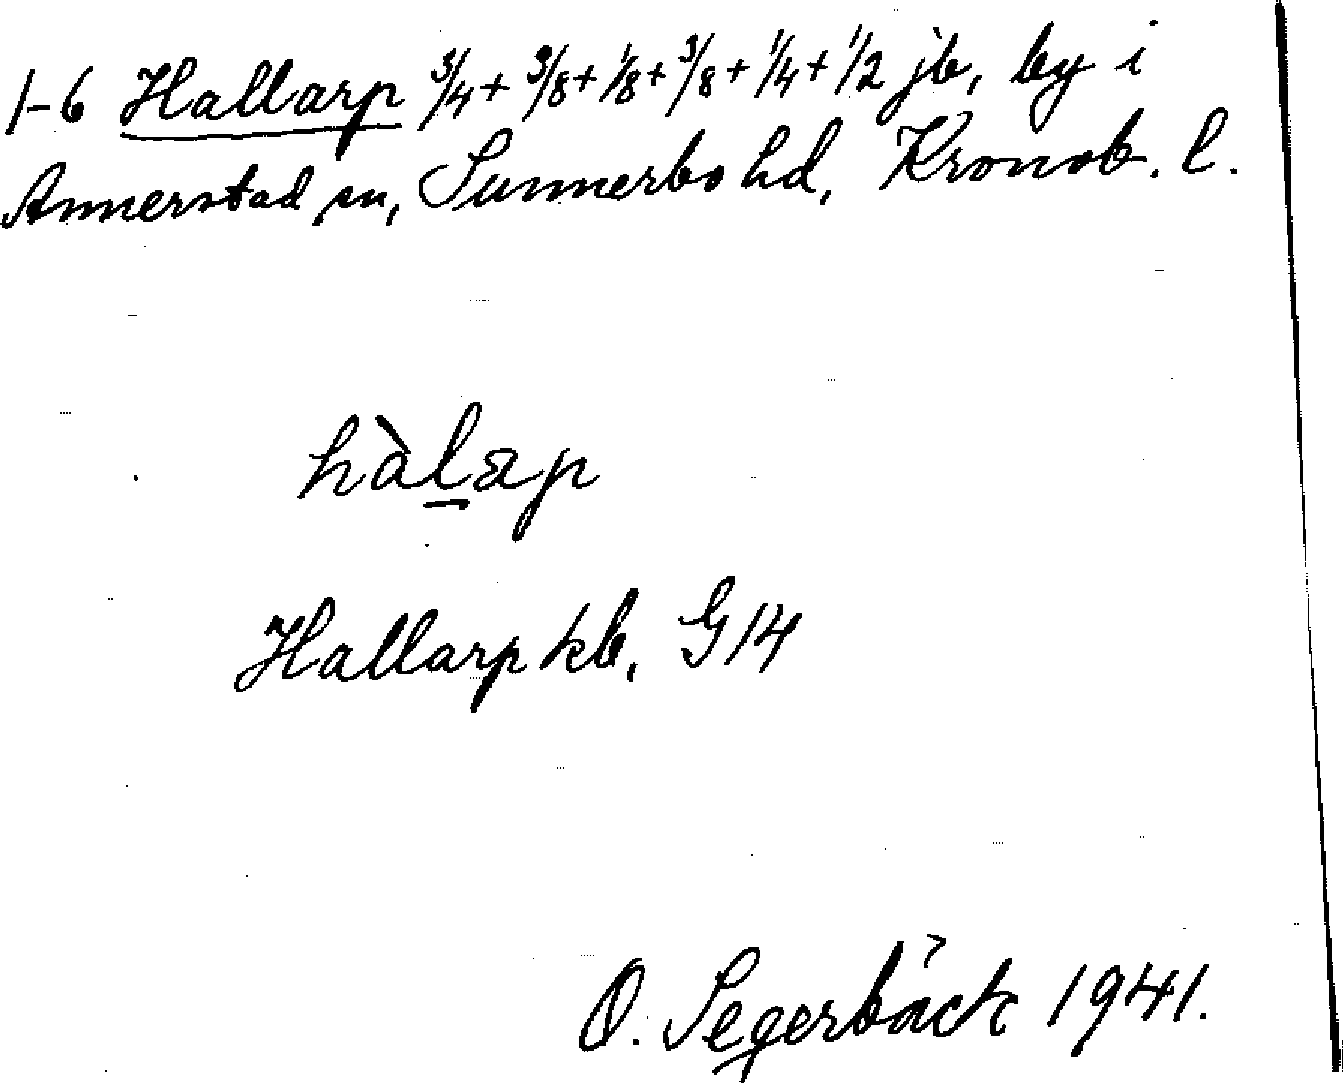 1-6 Hallarp 3/4 + 3/8 + 1/8 + 3/8 + 1/4 + 1/2 jb, by i
Annerstad sn, Sunnerbo hd, Kronob. l.
hàl̲ap
Hallarp kb. G14
O. Segerbäck 1941.